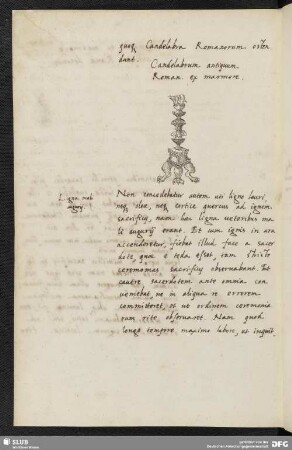 quoq Candelabra Romanorum osten
dunt.
Candelabrum antiquum
Roman. ex marmore.
Ligna mali
augurij
Non concedebatur autem uti ligno lauri
neq oleæ, neq cortice quercus ad ignem
sacrificij, nam hæc ligna veteribus ma
li augurij erant. Et cum ignis in ara
accenderetur, fiebat illud face a sacer
dote, quæ e teda esset, tam
ceremonias, sacrificij observabant. Et
cavere sacerdotem ante omnia con
veniebat ne in aliqua re errorem
committeret, et ut ordinem ceremonia
rum rite observaret. Nam quod
longo tempore, maximo labore, et
SLUB
DFG